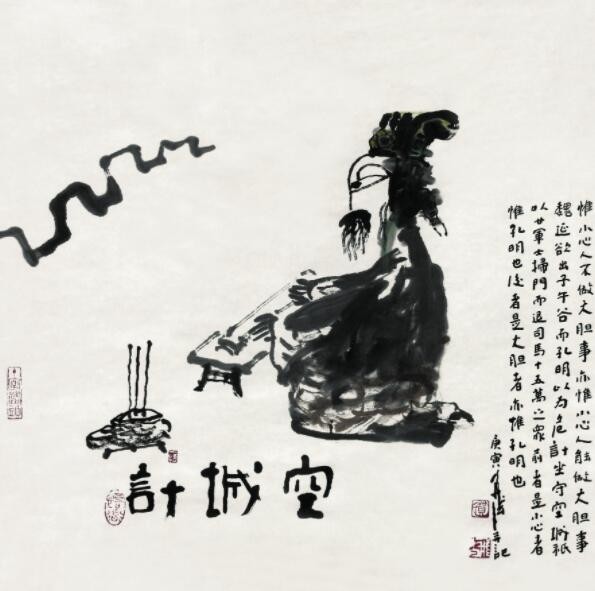 惟小心人不做大胆事亦惟小心人能做大胆事
魏延欲出子午谷而孔明以为危計坐守空城祇
以廿軍士掃門而退司馬十五萬之眾前者是小心者
惟孔明也後者是大胆者亦惟孔明也
庚寅
記
空城計